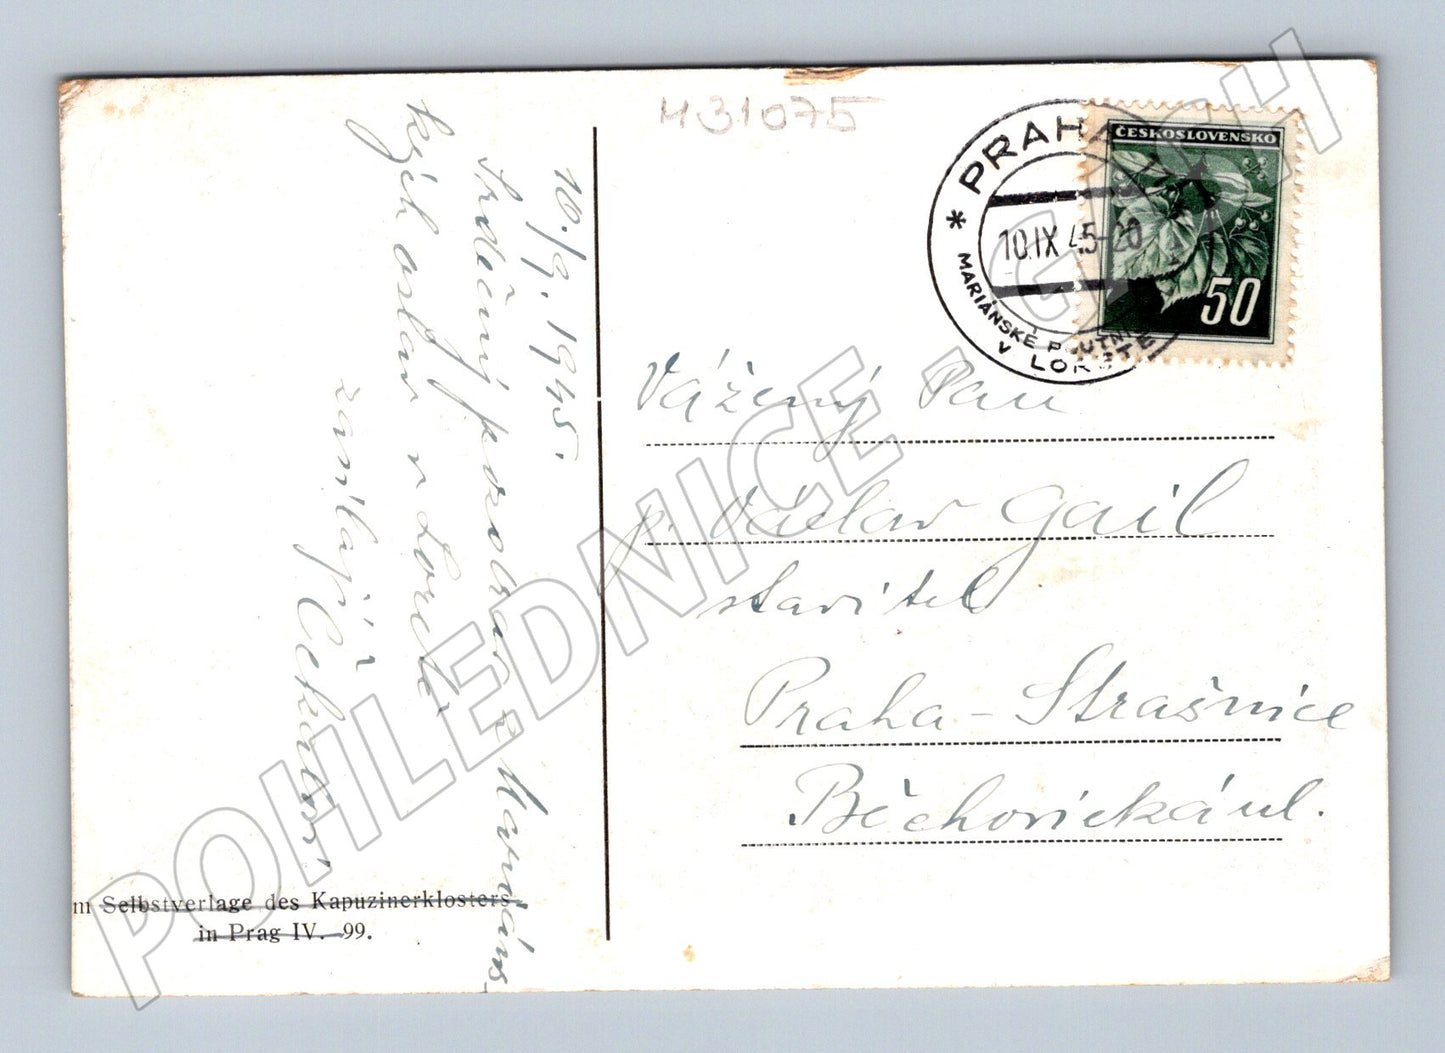 H31075
PRAHA
10.IX 45-20
MARIÁNSKÉ POUTNI
V LORETĚ
ČESKOSLOVENSKO
50
10./9. 1945.
Srdečný pozdrav z Marián.
kých oslav v Loretě.
zasílají
Vážený Pan
p. Václav Gail
stavitel
Praha-Strašnice
Běchovická ul.
m Selbstverlage des Kapuzinerklosters
in Prag IV. 99.
POHLEDNICE - GASH